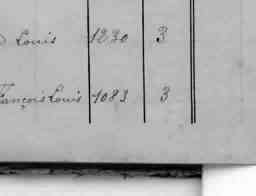 Louis 1230 3
françois Louis 1083 3